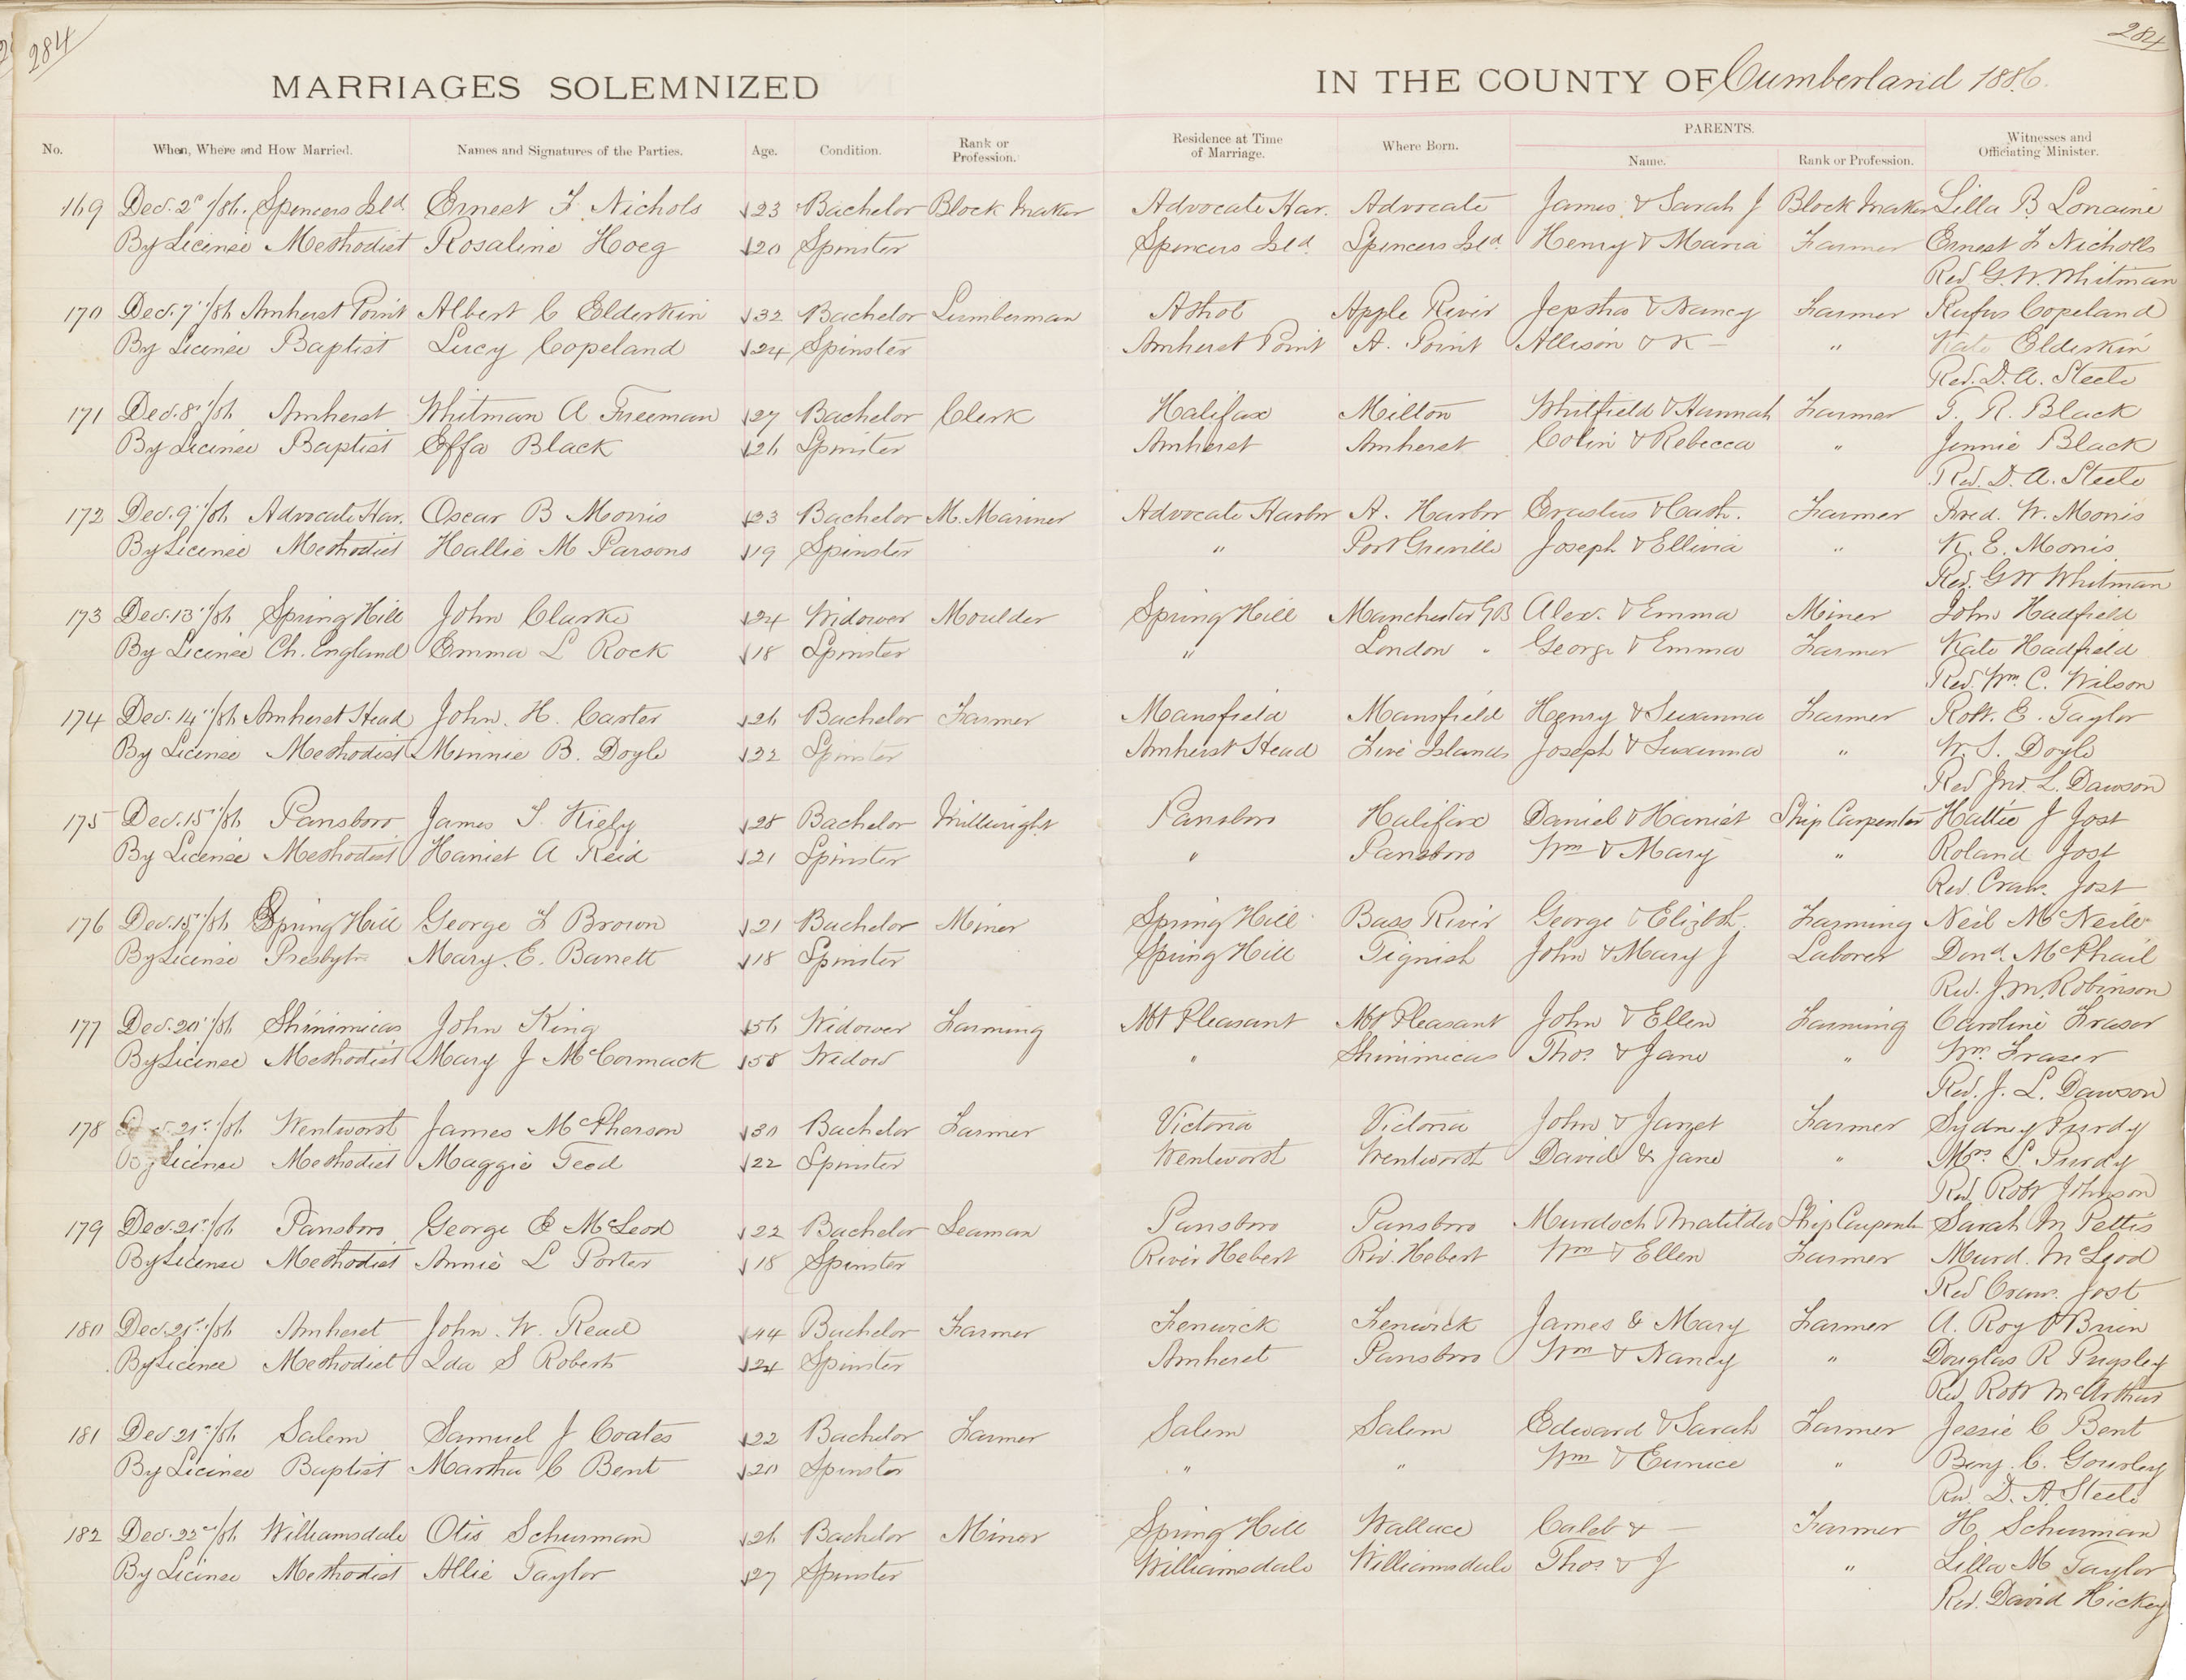 284
284
MARRIAGES SOLEMNIZED IN THE COUNTY OF Cumberland 1886.
No. When, Where and How Married. Names and Signatures of the Parties. Age. Condition. Rank or Profession. Residence at Time of Marriage. Where Born. PARENTS. Name. Rank or Profession. Witnesses and Officiating Minister.
169 Dec. 2"/86. Spencers Isld Ernest F Nichols 23 Bachelor Block Maker Advocate Har. Advocate James & Sarah J Block Maker Lilla B Loraine
By License Methodist Rosaline Hoeg 20 Spinster Spencers Isld. Spencers Isld. Henry & Maria Farmer Ernest F Nicholls
Rev G. W. Whitman
170 Dec. 7"/86 Amherst Point Albert C Elderkin 32 Bachelor Lumberman Athol Apple River Jeptha & Nancy Farmer Rufus Copeland
By License Baptist Lucy Copeland 24 Spinster Amherst Point A. Point Allison & K — " Kate Elderkin
Rev. D. A. Steele
171 Dec. 8"/86 Amherst Whitman A Freeman 27 Bachelor Clerk Halifax Milton Whitfield & Hannah Farmer T. R. Black
By License Baptist Effa Black 26 Spinster Amherst Amherst Colin & Rebecca " Jennie Black
Rev. D. A. Steele
172 Dec. 9"/86 Advocate Har. Oscar B Morris 23 Bachelor M. Mariner Advocate Harbr A. Harbr Erastus & Cath. Farmer Fred. W. Morris
By License Methodist Hallie M Parsons 19 Spinster " Port Greville Joseph & Ellivia " K. E. Morris
Rev. G W Whitman
173 Dec. 13"/86 Spring Hill John Clarke 24 Widower Moulder Spring Hill Manchester G B Alex. & Emma Miner John Hadfield
By License Ch. England Emma L Rock 18 Spinster " London " George & Emma Farmer Kate Hadfield
Rev. Wm. C. Wilson
174 Dec. 14"/86 Amherst Head John. H. Carter 26 Bachelor Farmer Mansfield Mansfield Henry & Susanna Farmer Robt. E. Taylor
By License Methodist Minnie B. Doyle 22 Spinster Amherst Head Five Islands Joseph & Susanna " W. S. Doyle
Rev Jno. L. Dawson
175 Dec. 15"/86 Parrsboro James S. Kiely 28 Bachelor Millwright Parrsboro Halifax Daniel & Harriet Ship Carpenter Hattie J Jost
By License Methodist Harriet A Reid 21 Spinster " Parrsboro Wm & Mary " Roland Jost
Rev. Cran. Jost
176 Dec. 15"/86 Spring Hill George F Brown 21 Bachelor Miner Spring Hill Bass River George & Elizbth. Farming Neil McNeil
By License Presbytn Mary. E. Barrett 18 Spinster Spring Hill Tignish John & Mary J Laborer Dond. McPhail
Rev. J. M. Robinson
177 Dec. 20"/86 Shinimicas John King 56 Widower Farming Mt Pleasant Mt Pleasant John & Ellen Farming Caroline Fraser
By License Methodist Mary J McCormack 58 Widow " Shinimicas Thos. & Jane " Wm. Fraser
Rev. J. L. Dawson
178 21st/86 Wentworth James McPherson 30 Bachelor Farmer Victoria Victoria John & Janzet Farmer Sydney Purdy
By License Methodist Maggie Teed 22 Spinster Wentworth Wentworth David & Jane " Mrs. S. Purdy
Rev. Robt Johnson
179 Dec. 21st/86 Parrsboro George E McLeod 22 Bachelor Seaman Parrsboro Parrsboro Murdoch & Matilda Ship Carpenter Sarah M Pettis
By License Methodist Annie L Porter 18 Spinster River Hebert Riv. Hebert Wm & Ellen Farmer Murd. McLeod
Rev Cran. Jost
180 Dec. 21st/86 Amherst John. W. Read 44 Bachelor Farmer Fenwick Fenwick James & Mary Farmer A. Roy O'Brien
By License Methodist Ida S Roberts 24 Spinster Amherst Parrsboro Wm & Nancy " Douglas R Pugsley
Rev. Robt McArthur
181 Dec 21st/86 Salem Samuel J Coates 22 Bachelor Farmer Salem Salem Edward & Sarah Farmer Jessie C Bent
By License Baptist Martha C Bent 20 Spinster " " Wm & Eunice " Benj. C. Gourley
Rev. D. A. Steele
182 Dec. 22nd/86 Williamsdale Otis Schurman 26 Bachelor Miner Spring Hill Wallace Caleb & — Farmer H. Schurman
By License Methodist Allie Taylor 27 Spinster Williamsdale Williamsdale Thos. & J " Lilla M Taylor
Rev. David Hickey